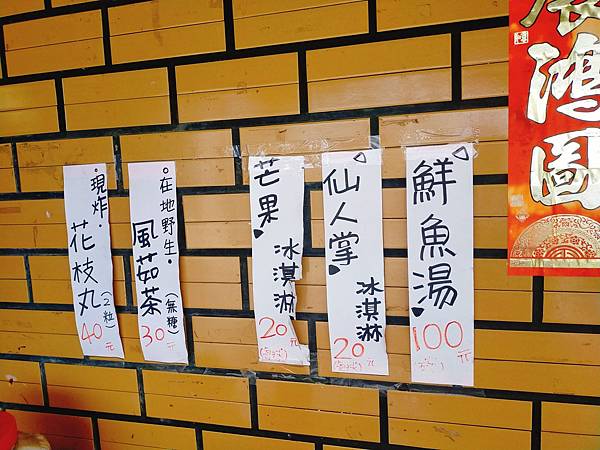 現炸.花枝丸(2粒)40元
在地野生.風茹茶(無糖)30元
芒果冰淇淋20元
仙人掌冰淇淋20元
鮮魚湯100元
鴻圖